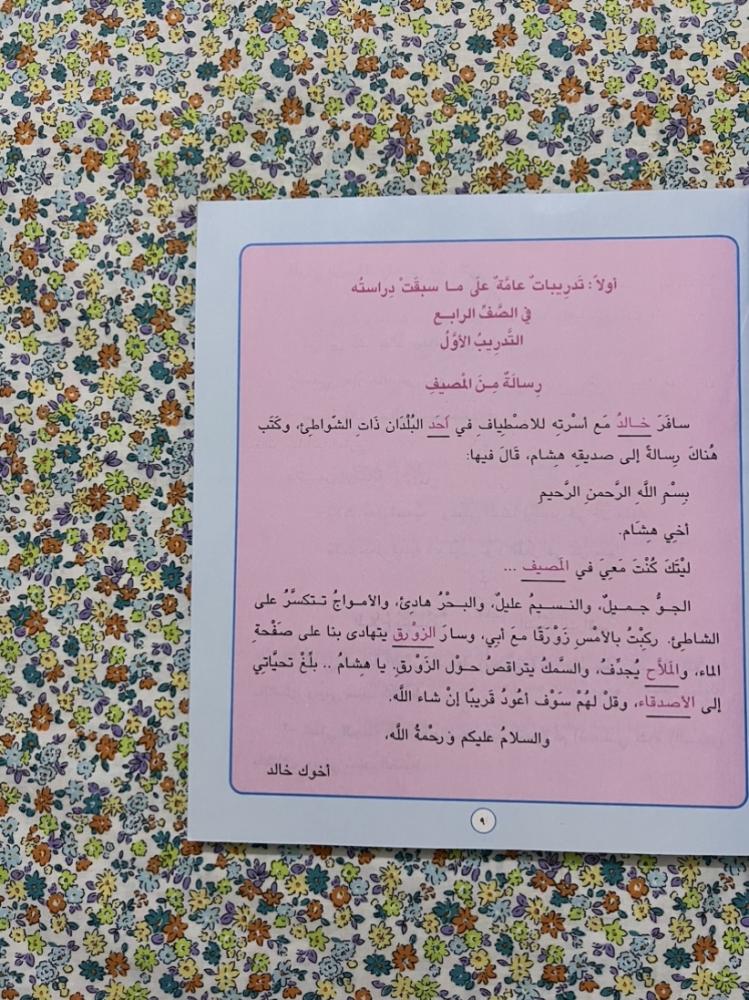 أولاً: تَدرِيباتٌ عامَّةٌ علَى ما سبقَتْ دِراستُه
في الصَّفِّ الرابع
التَّدرِيبُ الأوَّلُ
رِسالَةٌ مِنَ المَصيفِ
سافَرَ خالدُ مَع أسْرتِه للاصْطِيافِ في أحَد البُلْدَان ذَاتِ الشّواطِئ، وكَتَب
هُناكَ رِسالةً إلى صديقِهِ هِشام، قَالَ فيها:
بِسْمِ اللَّهِ الرَّحمنِ الرَّحيم
أخي هِشَام.
ليْتَكَ كُنْتَ مَعِيَ في المَصيف ...
الجوُّ جميلٌ، والنسيمُ عليلٌ، والبحْرُ هادِئ، والأمواجُ تتكسَّرُ على
الشاطئِ. ركِبْتُ بالأمْسِ زَوْرَقًا معَ أبي، وسارَ الزوْرق يتهادى بنا على صفْحةِ
الماء، والملاَّح يُجدِّفُ، والسَّمكُ يتراقصُ حوْل الزَوْرقِ. يا هشامُ .. بلِّغْ تحيَّاتي
إلى الأصدقاء، وقلْ لهُمْ سَوْف أعُودُ قريبًا إنْ شاء اللَّه.
والسلامُ عليكم ورحْمةُ اللَّه،
أخوك خالد
٩